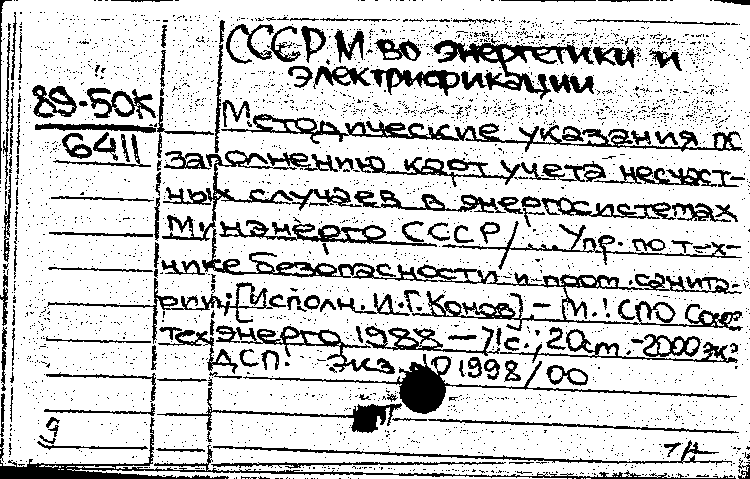 СССР М во энергетики и
электрификации
89-50К
6411
Методические указания по
заполнению карт учета несчаст-
ных случаев в энергосистемах
Минэнерго СССР/...Упр. по тех-
нике безопасности и пром. санита-
рии; [Исполн. И.Г. Конов]. - М.: СПО Союз
техэнерго 1988 - 71с.; 20см. - 2000 экз
ДСП! Экз. № 1998/00